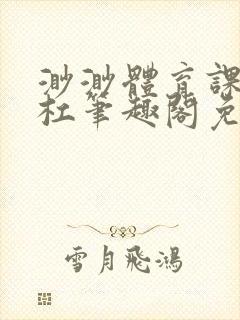 渺渺體育課
杜筆趣閣免
雪月飛鴻